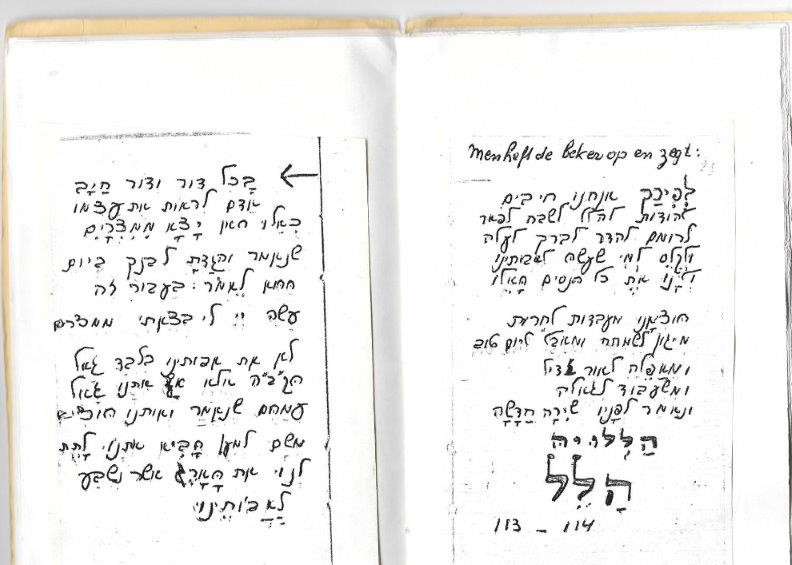 בְּכָל דור ודור חַיָב
אדם לראות את עצמו
כְּאִלוּ הוא יָצָא מִמִצְרָיִם
שנאמר והִגַדְתָ לבנך ביום
ההוא לֵאמֹר: בעבור זה
עשה יי לי בצאתי ממצרים
לא את אבותינו בלבד גאל
הקב"ה אלא אף אתנו גָאַל
עמהם שנאמַר ואותנו הוציא
משם למען הָבִיא אתנוּ לָתֶת
לנו את הָאָרֶץ אשר נשבע
לַאֲבוֹתֵינוּ
Men heft de beker op en zegt:
לְפִיכַך אנחנו חיבים
להודות להלל לשבח לפאר
לרומם להדר לברך לעלה
ולקלס למי שעשה לאבותינו
ולָנוּ אֶת כל הנסים הָאֵלוּ
הוציאָנוּ מעבדות לחרות
מיגון לשמחה ומאבל ליום טוב
ומאֲפֵלה לאור גדול
ומשעבוד לגאולה
ונאמר לפָנָיו שִירָה חֲדָשָה
הַלְלוּיה
הָלֵל
113 - 114